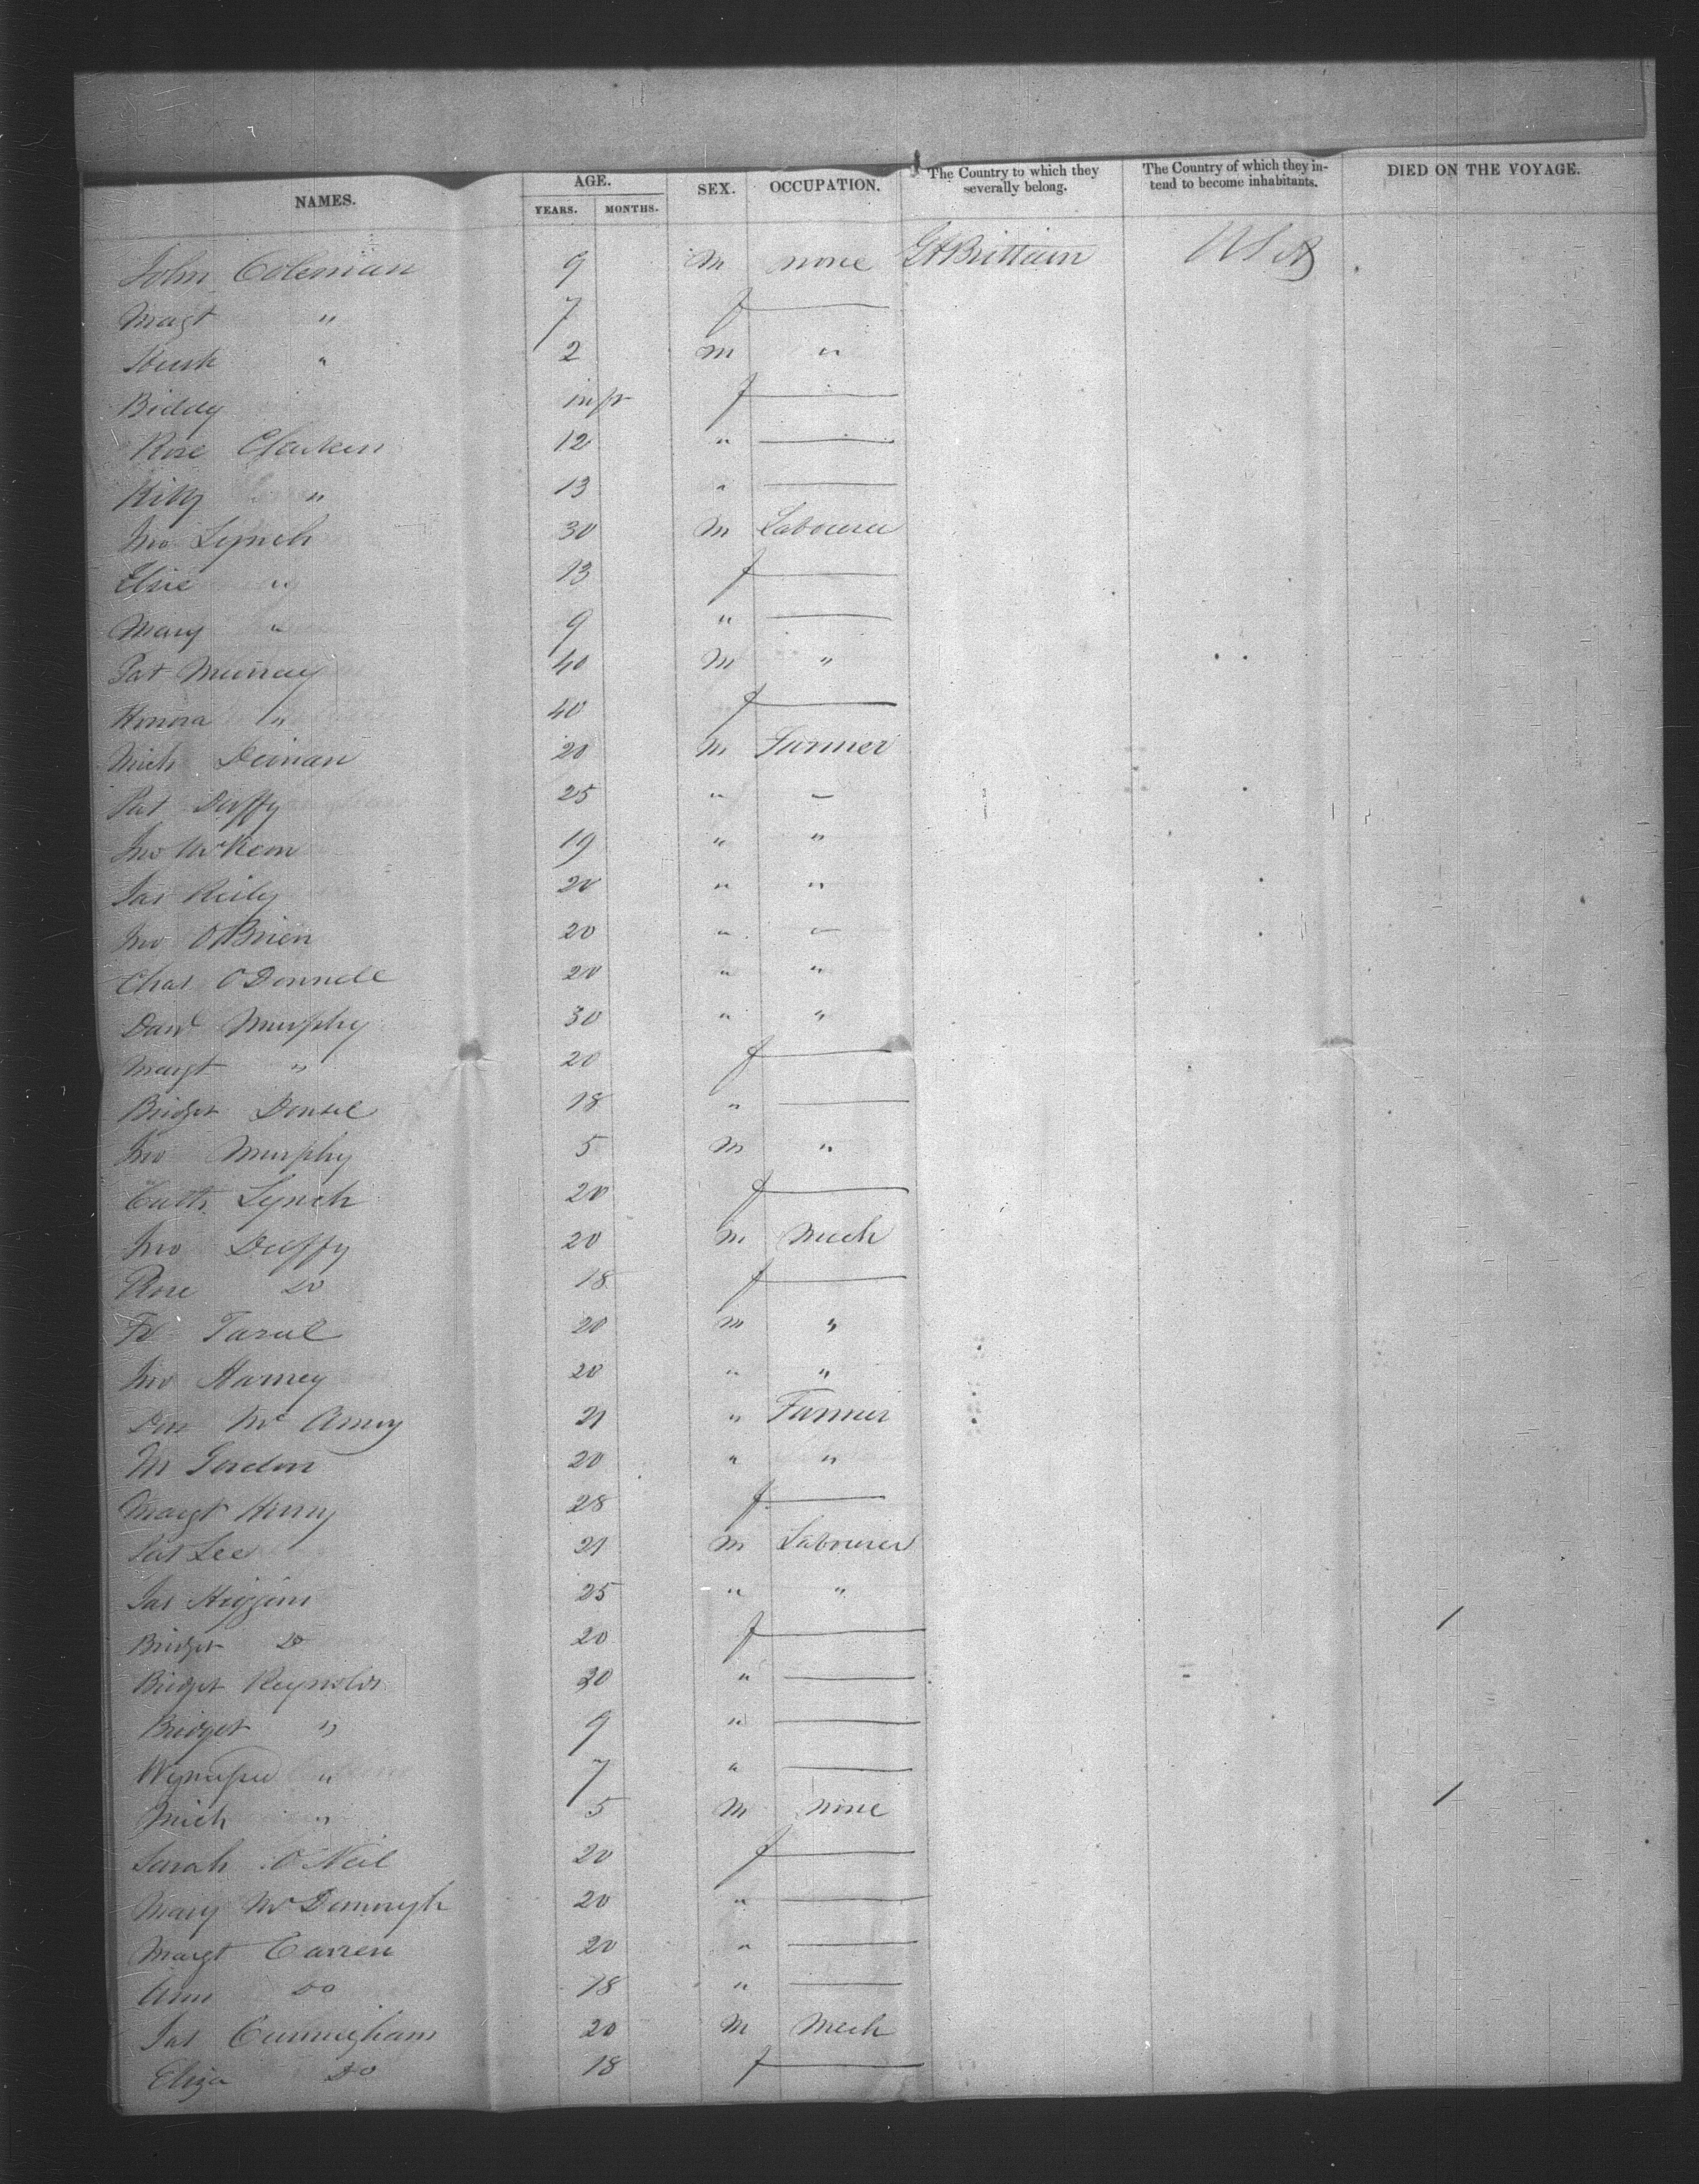 NAMES. AGE. SEX. OCCUPATION. The Country to which they severally belong. The Country of which they intend to become inhabitants. DIED ON THE VOYAGE.
YEARS. MONTHS.
John Coleman 9 m none Gt Brittain USA
Magt " 7 f —
" 2 m "
Biddy inft f —
Rose 12 " —
Kitty " 13 " —
Jno Lynch 30 m Labourer
" 13 f —
Mary " 9 " —
Pat Murray 40 m "
Honora " 40 f —
Mich 20 m Farmer
Pat Duffy 25 " –
Jno McKeon 19 " "
Jas Reily 20 " "
Jno O'Brien 20 " –
Chas O'Donnell 20 " "
Murphy 30 " "
Margt " 20 f —
Bridget 18 " —
Jno Murphy 5 m "
Cath Lynch 20 f —
Jno Duffy 20 m Mech
Rose Do 18 f —
20 m "
Jno Harney 20 " "
Mc 21 " Farmer
M Gordon 20 " "
Margt Henry 28 f —
Pat Lee 21 m Labourer
Jas Higgins 25 " "
Bridget Do 20 f — /
Bridget Reynolds 30 " —
Bridget " 9 " —
" 7 " —
Mich " 5 m none /
Sarah O'Neil 20 f —
Mary McDonough 20 " —
Margt Carren 20 " —
Ann Do 18 " —
Jas Cunningham 20 m Mech
Eliza Do 18 f —